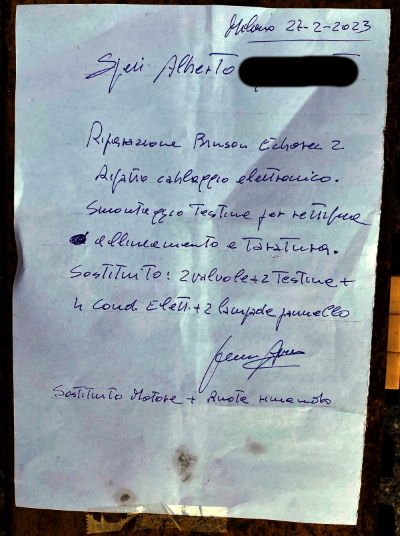 Milano 27-2-2023
Alberto
Riparazione Binson Echorec 2
Rifatto cablaggio elettronico.
Smontaggio Testine per rettifica
allineamento e Taratura.
Sostituito: 2 valvole + 2 Testine +
4 Cond. Elett. + 2 lampade pannello
Sostituito Motore + Ruota rimando